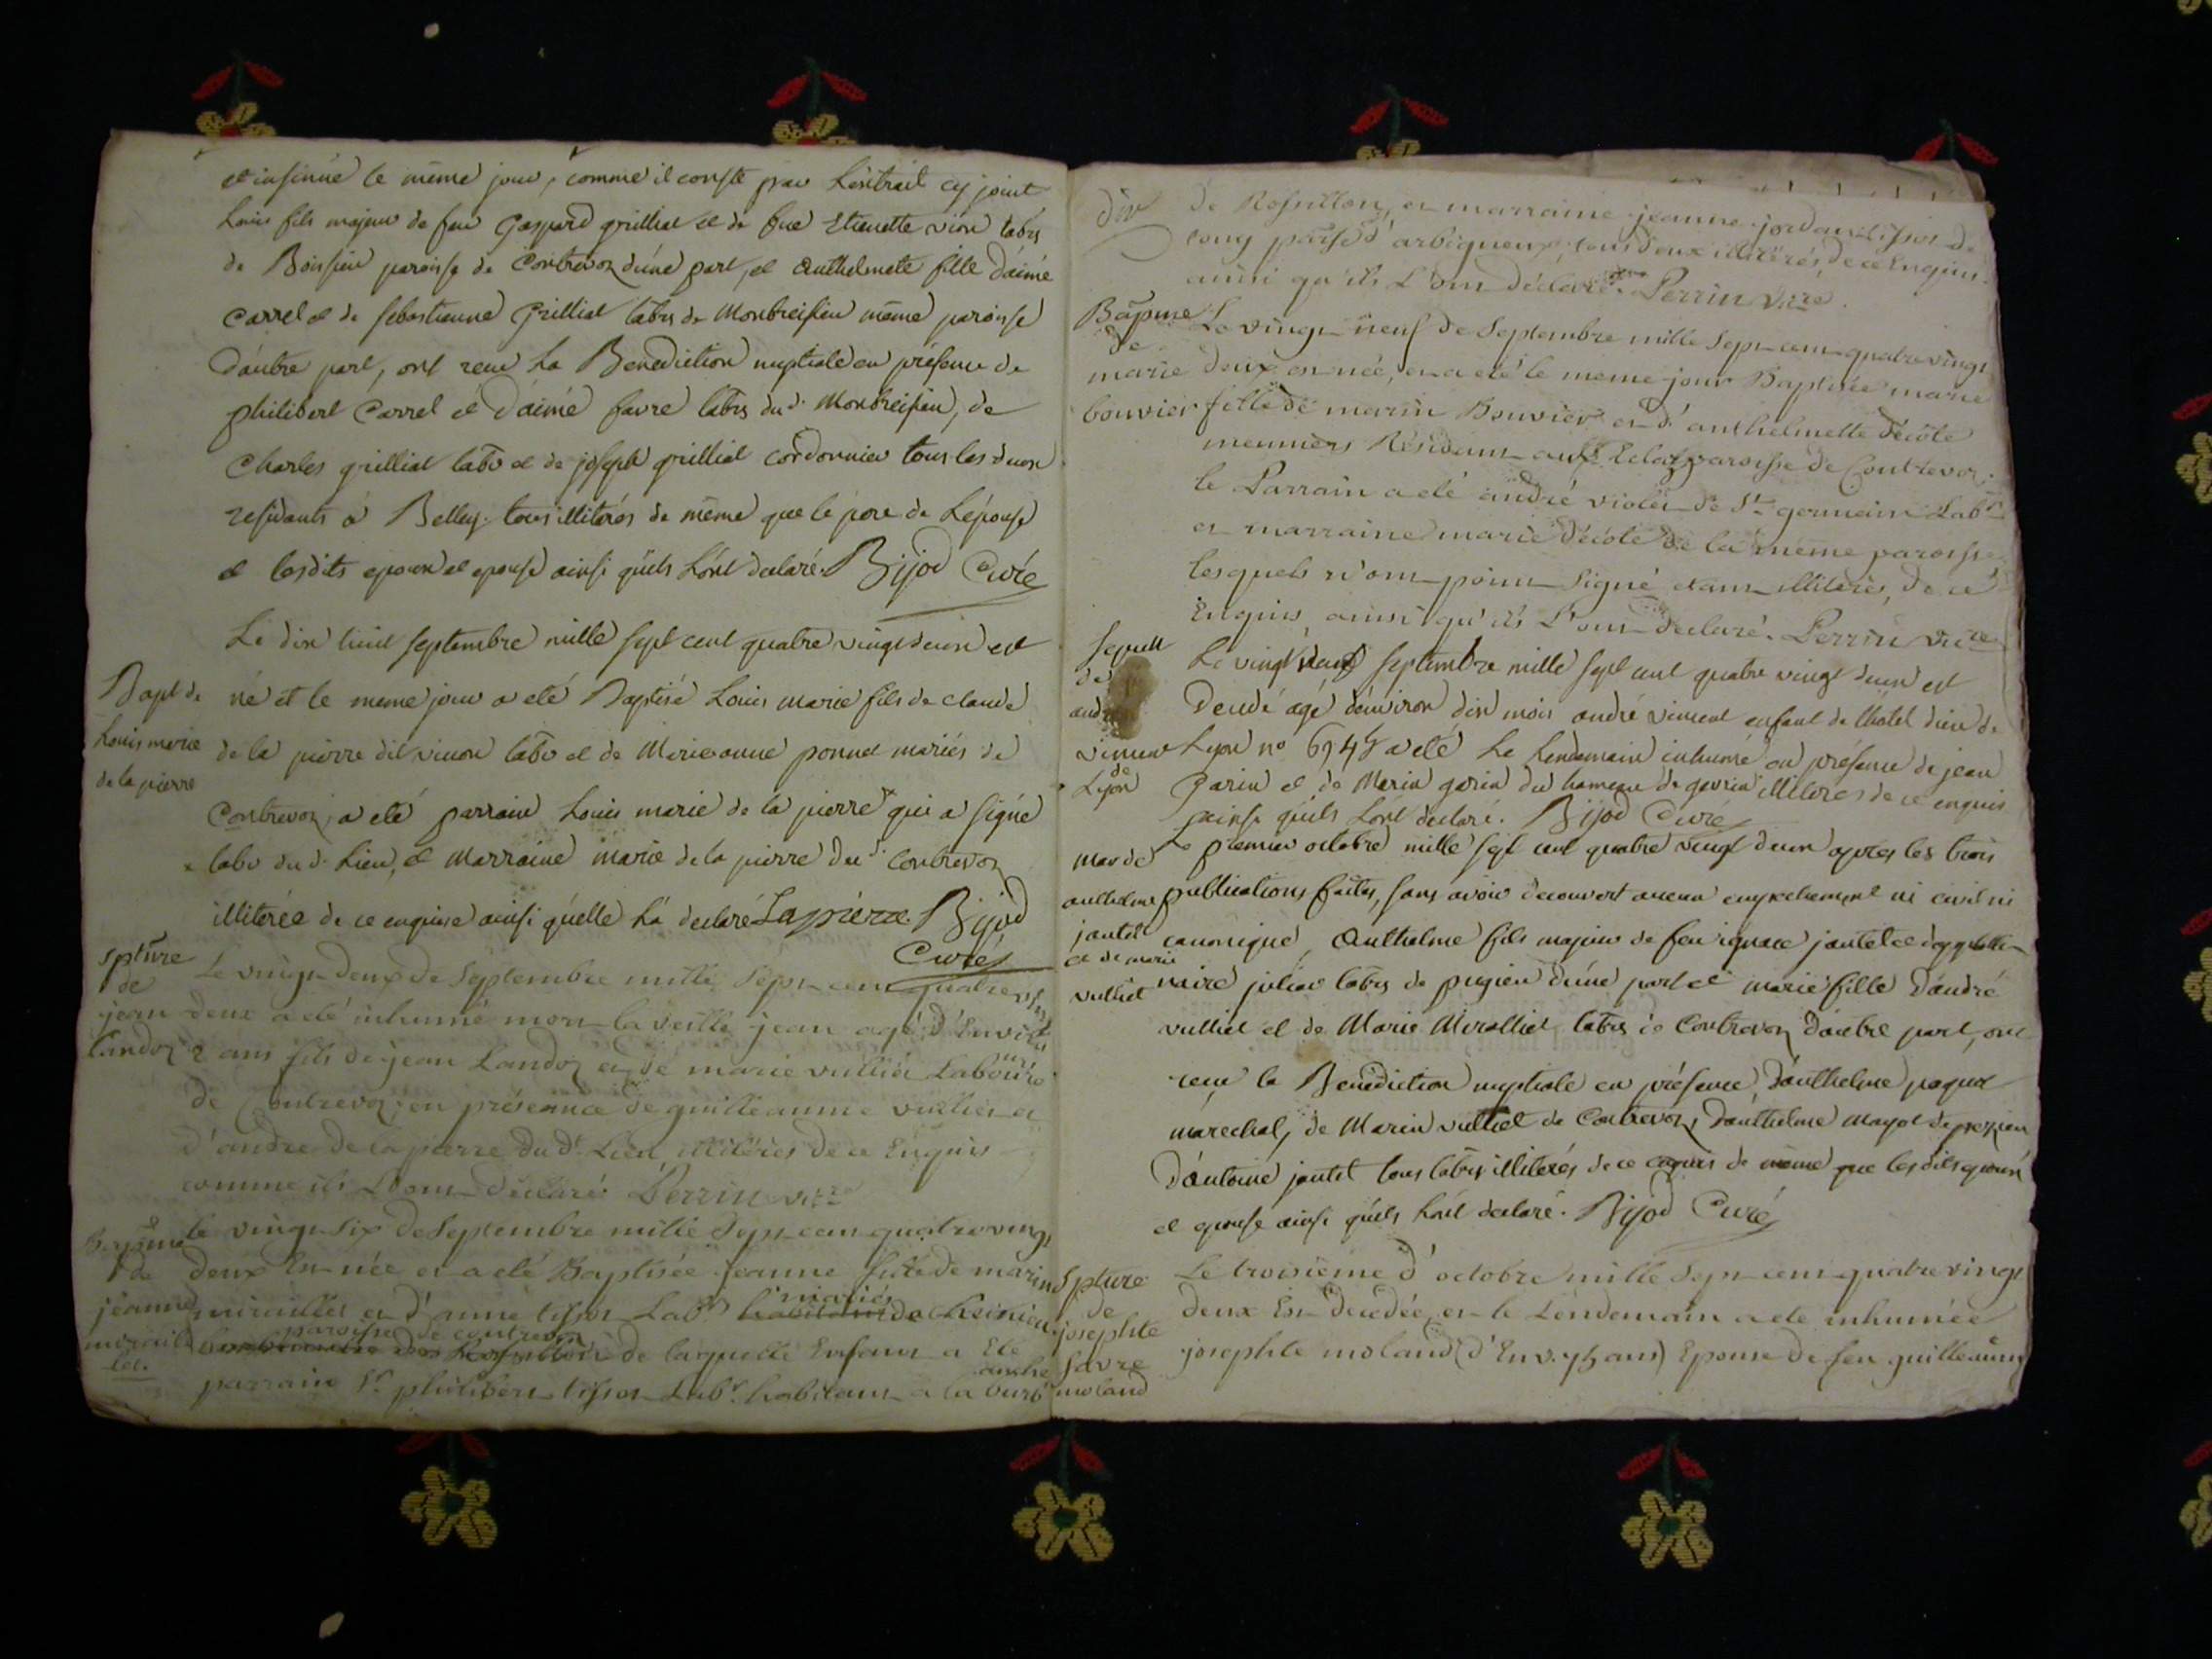 et insinué le même jour, comme il conste par Lextrait cy joint
Louis fils majeur de feu Gaspard grilliet et de feue Etienette vion labrs
de Boissieu paroisse de Contrevoz d'une part, et Anthelmete fille d'aimé
Carrel et de sebastienne Grilliet labrs de Montbreisieu même paroisse
d'autre part, ont recu La Benediction nuptiale en présence de
philibert Carrel et d'aimé favre labrs dud. Montbreisieu, de
Charles grilliet labr et de joseph grilliet cordonnier tous les deux
residants à Belley. tous illiterés de même que le pere de Lépouse
et lesdits epoux et epouse ainsi qu'ils L'ont declaré. Bijod Curé
Le dix huit septembre mille sept cent quatre vingt deux est
Bapt de
Louis marie
de la pierre
né et le meme jour a eté Baptisé Louis marie fils de claude
de la pierre dit vion labr et de Marieanne ponnet mariés de
Contrevoz, a eté parrain Louis marie de la pierre qui a signé
labr dud. Lieu, et Marraine marie de la pierre dud. Contrevoz
illiterée de ce enquise ainsi qu'elle L'a declaré Lapierre. Bijod
Curé
spture
de
jean
Landoz
Le vingt deux de Septembre mille Sept cent quatre vingt
deux a été inhumé mort la veille jean agé d'Environ
2 ans fils de jean Landoz et de marie vulliet Laboure
de Contrevoz, en présence de guilleaume vulliet et
d'andré de la pierre du dt. Lieu illiterés de ce Enquis
comme ils L'ont déclaré Perrin vire
bapme
de
jeanne
mirail
let.
le vingt six de Septembre mille Sept cent quatre vingt
deux Est née et a eté Baptisée jeanne fille de marin
miraillet et d'anne tissot Labrs mariés
paroisse de contrevoz
de laquelle Enfant a Eté
parrain sr. philibert tissot Labr. habitant a la burb
div de Rossillon, et marraine jeanne
tous deux illitérés, de ce Enquis
ainsi qu'ils L'ont déclaré. Perrin vire.
Bapme
de
marie
bouvier
Le vingt neuf de Septembre mille Sept cent quatre vingt
deux est née, et a eté le meme jour Baptisée marie
fille de marin Bouvier et d'anthelmette décôte
meuniers Résidant aux Eclaz paroisse de Contrevoz.
le Parrain a eté andré violet de St. germain Labr
et marraine marie décôte de la même paroisse
lesquels n'ont point signé etant illiterés, de ce
Enquis, ainsi qu'ils L'ont declaré. Perrin vire
sepult
de
andré
vincent
de
Lyon
Le vingt neuf septembre mille sept cent quatre vingt deux est
decedé agé d'environ dix mois andré vincent enfant de l'hotel dieu de
Lyon no a eté Le Lendemain inhumé en présence de jean
garin et de Marin garin du hameau de gevrin illiteres de ce enquis
ainsi qu'ils L'ont declaré. Bijod Curé
mar de
anthelme
jantet
et de marie
vulliet
Le premier octobre mille sept cent quatre vingt deux apres les trois
publications faites, sans avoir decouvert aucun empechement ni civil ni
canonique, Anthelme fils majeur de feu ignace jantet et
juliat labrs de pugieu d'une part et marie fille d'andré
vulliet et de Marie Miralliet labrs de Contrevoz d'autre part, ont
recu la Benediction nuptiale en présence, d'anthelme paquet
marechal, de Marin vulliet de Contrevoz, d'anthelme mayot de prezieu
d'antoine jantet tous labrs illiterés de ce enquis de même que lesdits epoux
et epouse ainsi qu'ils L'ont declaré. Bijod Curé
Spture
de
josephte
favre
moland
Le troisième d'octobre mille Sept cent quatre vingt
deux Est Decedée, et le Lendemain a eté inhumée
josephte moland (d'Env. 75 ans) Epouse de feu guilleaume